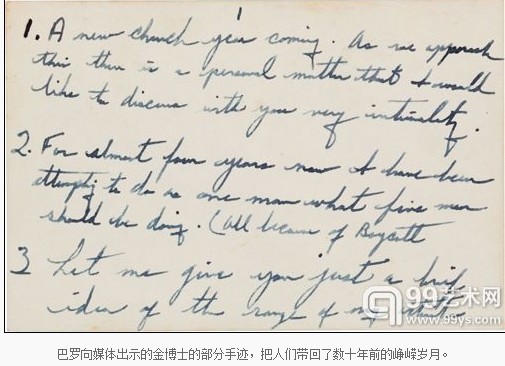 1
1. A new church year coming. As we approach
this then is a personal matter that I would
like to discuss with you very intimately.
2. For almost four years now I have been
attempting to do as one man what five men
should be doing. (All because of Boycott
3 Let me give you just a brief
idea of the range of my
99艺术网
www.99ys.com
巴罗向媒体出示的金博士的部分手迹，把人们带回了数十年前的峥嵘岁月。